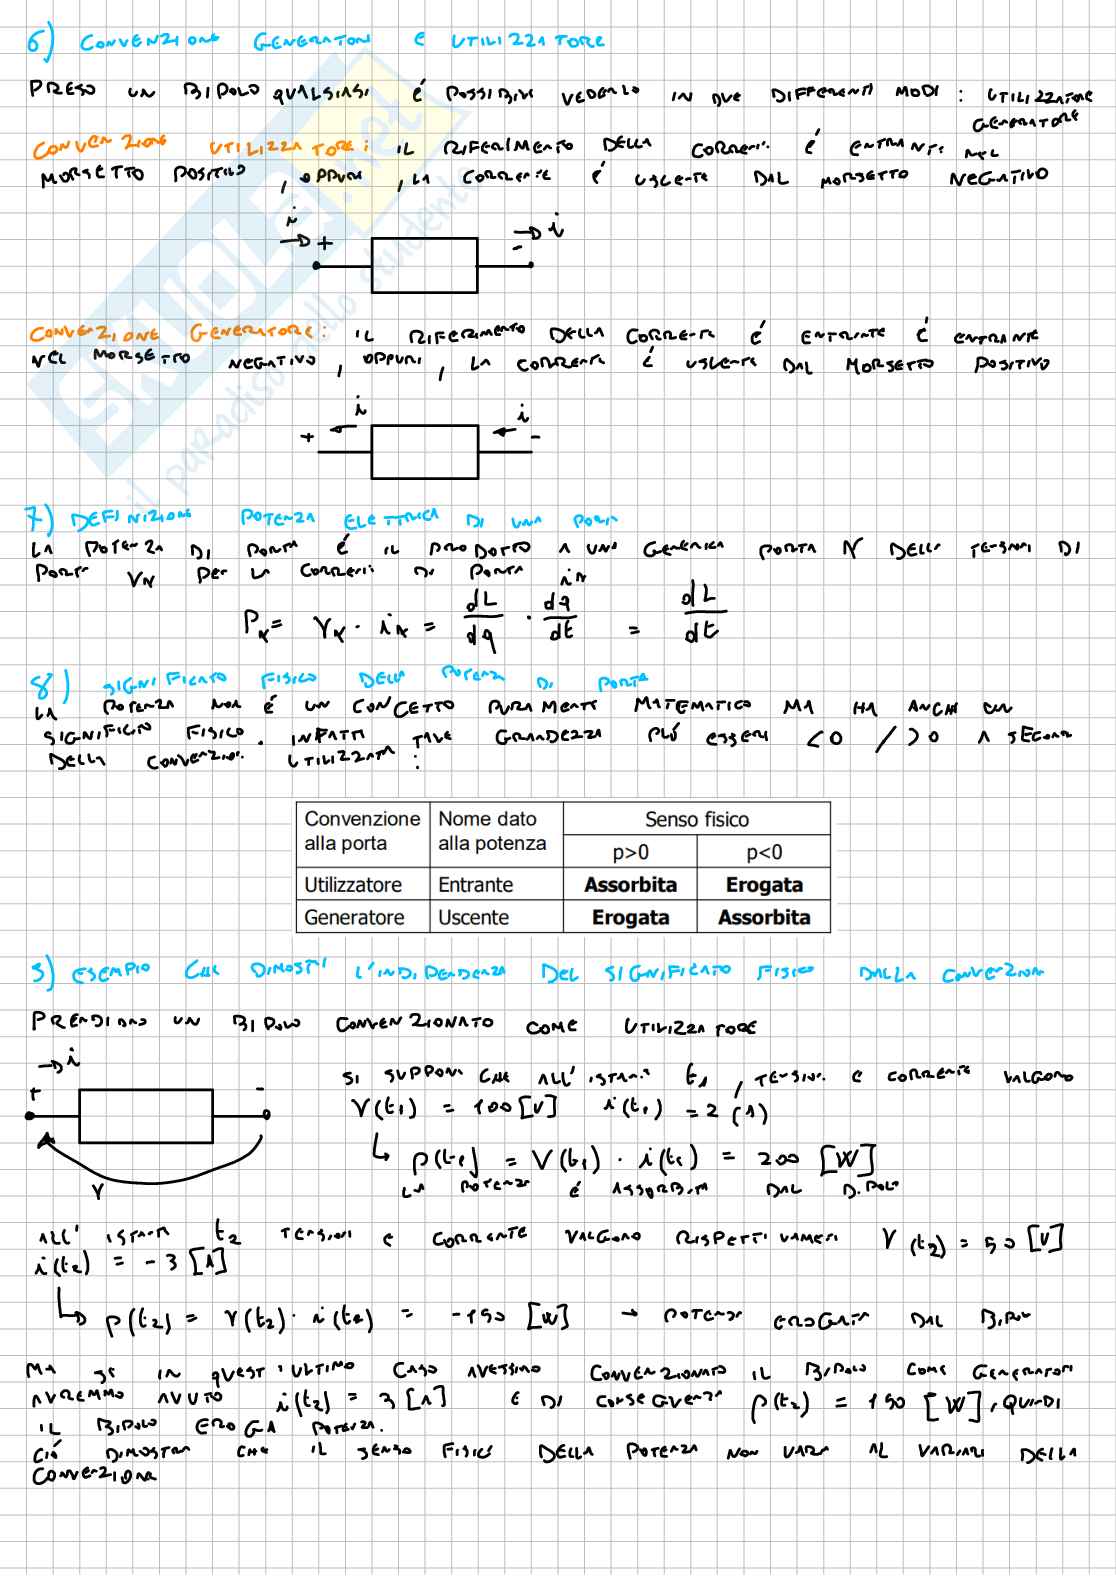 6) CONVENZIONE GENERATORE E UTILIZZATORE
PRESO UN BIPOLO QUALSIASI É POSSIBILE VEDERLO IN DUE DIFFERENTI MODI : UTILIZZATORE
GENERATORE
CONVENZIONE UTILIZZATORE: IL RIFERIMENTO DELLA CORRENTE É ENTRANTE NEL
MORSETTO POSITIVO , OPPURE , LA CORRENTE É USCENTE DAL MORSETTO NEGATIVO
i
+ - i
CONVENZIONE GENERATORE: IL RIFERIMENTO DELLA CORRENTE É ENTRANTE É ENTRANTE
NEL MORSETTO NEGATIVO , OPPURE , LA CORRENTE É USCENTE DAL MORSETTO POSITIVO
i i
+ -
7) DEFINIZIONE POTENZA ELETTRICA DI UNA PORTA
LA POTENZA DI PORTA É IL PRODOTTO A UNA GENERICA PORTA K DELLE TENSIONI DI
PORTA VK PER LA CORRENTE DI PORTA iK
PK = VK · iK = dL/dq · dq/dt = dL/dt
8) SIGNIFICATO FISICO DELLA POTENZA DI PORTA
LA POTENZA NON É UN CONCETTO PURAMENTE MATEMATICO MA HA ANCHE UN
SIGNIFICATO FISICO. INFATTI TALE GRANDEZZA PUÓ ESSERE <0 / >0 A SECONDA
DELLA CONVENZIONE UTILIZZATA :
Convenzione alla porta Nome dato alla potenza Senso fisico
p>0 p<0
Utilizzatore Entrante Assorbita Erogata
Generatore Uscente Erogata Assorbita
9) ESEMPIO CHE DIMOSTRI L'INDIPENDENZA DEL SIGNIFICATO FISICO DALLA CONVENZIONE
PRENDIAMO UN BIPOLO CONVENZIONATO COME UTILIZZATORE
i
+ -
V
SI SUPPONE CHE ALL'ISTANTE t1 , TENSIONE E CORRENTE VALGONO
V(t1) = 100 [V] i(t1) = 2 [A]
p(t1) = V(t1) · i(t1) = 200 [W]
LA POTENZA É ASSORBITA DAL BIPOLO
ALL'ISTANTE t2 TENSIONE E CORRENTE VALGONO RISPETTIVAMENTE V(t2) = 50 [V]
i(t2) = -3 [A]
p(t2) = V(t2) · i(t2) = -150 [W] → POTENZA EROGATA DAL BIPOLO
MA SE IN QUEST'ULTIMO CASO AVESSIMO CONVENZIONATO IL BIPOLO COME GENERATORE
AVREMMO AVUTO i(t2) = 3 [A] E DI CONSEGUENZA p(t2) = 150 [W], QUINDI
IL BIPOLO EROGA POTENZA.
CIÓ DIMOSTRA CHE IL SENSO FISICO DELLA POTENZA NON VARIA AL VARIARE DELLA
CONVENZIONE
SKUOLA.net
il paradiso dello studente